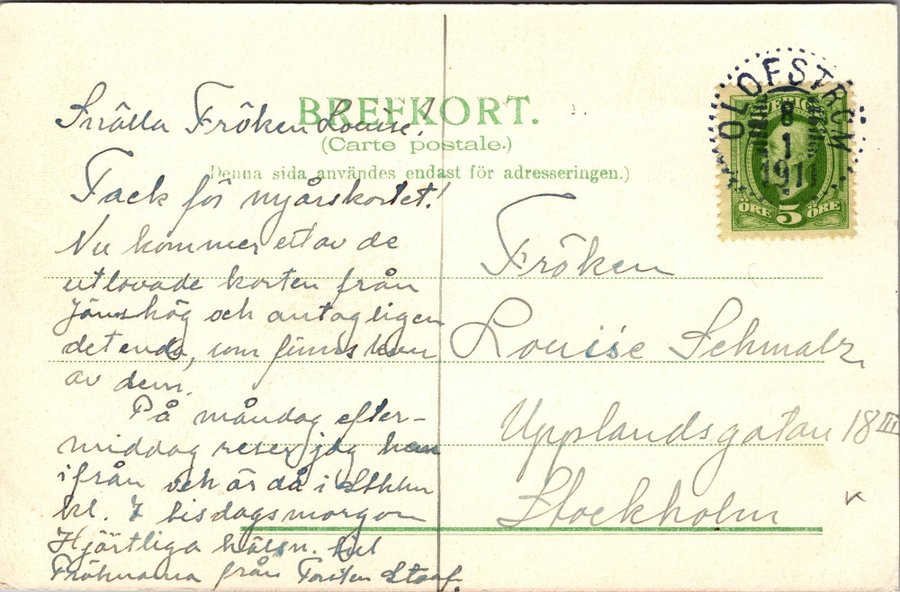 BREFKORT.
(Carte postale.)
Denna sida användes endast för adresseringen.)
OLOFSTRÖM
8
1
1911
ÖRE 5 ÖRE
Snälla Fröken Louise!
Tack för nyårskortet!
Nu kommer ett av de
utlovade korten från
Jämshög och antagligen
det enda, som finns kvar
av dem.
På måndag efter-
middag reser jag hem
ifrån och är då i Sthlm
kl. 7 tisdagsmorgon
Hjärtliga hälsn. till
Fröknarna från Torsten Staaf.
Fröken
Louise Schmalz
Upplandsgatan 18 III
Stockholm